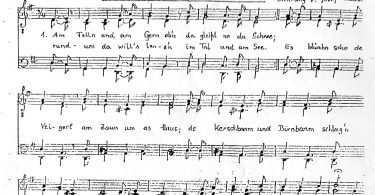 1. Am Felln und am Gern ob'n da gleißt no da Schnee;
rund-um da will's len-z'n im Tal und am See. Es blüahn scho de
Vei-gerl am Zaun um as Haus; de Kerschbaam und Birnbarm schlag'n